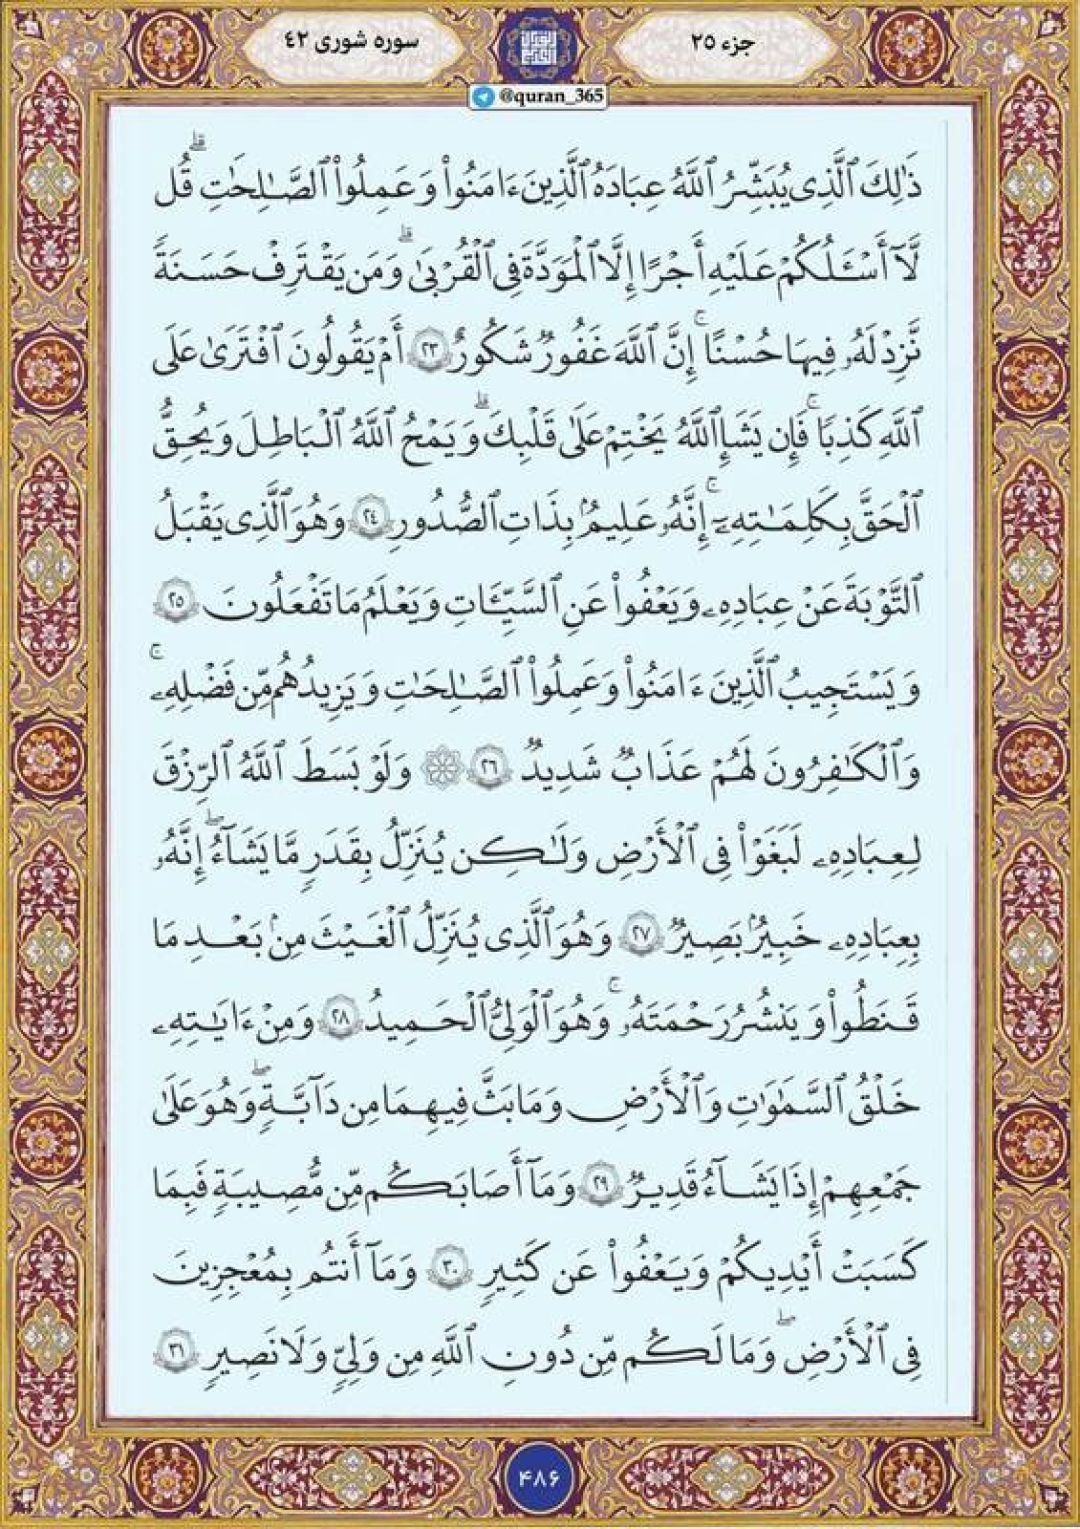 جزء ۲۵
سوره شوری ۴۲
@quran_365
ذَٰلِكَ ٱلَّذِى يُبَشِّرُ ٱللَّهُ عِبَادَهُ ٱلَّذِينَ ءَامَنُوا۟ وَعَمِلُوا۟ ٱلصَّـٰلِحَـٰتِ ۗ قُل
لَّآ أَسْـَٔلُكُمْ عَلَيْهِ أَجْرًا إِلَّا ٱلْمَوَدَّةَ فِى ٱلْقُرْبَىٰ ۗ وَمَن يَقْتَرِفْ حَسَنَةً
نَّزِدْ لَهُۥ فِيهَا حُسْنًا ۚ إِنَّ ٱللَّهَ غَفُورٌ شَكُورٌ ٢٣ أَمْ يَقُولُونَ ٱفْتَرَىٰ عَلَى
ٱللَّهِ كَذِبًا ۚ فَإِن يَشَإِ ٱللَّهُ يَخْتِمْ عَلَىٰ قَلْبِكَ ۗ وَيَمْحُ ٱللَّهُ ٱلْبَاطِلَ وَيُحِقُّ
ٱلْحَقَّ بِكَلِمَـٰتِهِۦٓ ۚ إِنَّهُۥ عَلِيمٌۢ بِذَاتِ ٱلصُّدُورِ ٢٤ وَهُوَ ٱلَّذِى يَقْبَلُ
ٱلتَّوْبَةَ عَنْ عِبَادِهِۦ وَيَعْفُوا۟ عَنِ ٱلسَّيِّـَٔاتِ وَيَعْلَمُ مَا تَفْعَلُونَ ٢٥
وَيَسْتَجِيبُ ٱلَّذِينَ ءَامَنُوا۟ وَعَمِلُوا۟ ٱلصَّـٰلِحَـٰتِ وَيَزِيدُهُم مِّن فَضْلِهِۦ ۚ
وَٱلْكَـٰفِرُونَ لَهُمْ عَذَابٌ شَدِيدٌ ٢٦ ۞ وَلَوْ بَسَطَ ٱللَّهُ ٱلرِّزْقَ
لِعِبَادِهِۦ لَبَغَوْا۟ فِى ٱلْأَرْضِ وَلَـٰكِن يُنَزِّلُ بِقَدَرٍ مَّا يَشَآءُ ۚ إِنَّهُۥ
بِعِبَادِهِۦ خَبِيرٌۢ بَصِيرٌ ٢٧ وَهُوَ ٱلَّذِى يُنَزِّلُ ٱلْغَيْثَ مِنۢ بَعْدِ مَا
قَنَطُوا۟ وَيَنشُرُ رَحْمَتَهُۥ ۚ وَهُوَ ٱلْوَلِىُّ ٱلْحَمِيدُ ٢٨ وَمِنْ ءَايَـٰتِهِۦ
خَلْقُ ٱلسَّمَـٰوَٰتِ وَٱلْأَرْضِ وَمَا بَثَّ فِيهِمَا مِن دَآبَّةٍ ۖ وَهُوَ عَلَىٰ
جَمْعِهِمْ إِذَا يَشَآءُ قَدِيرٌ ٢٩ وَمَآ أَصَـٰبَكُم مِّن مُّصِيبَةٍ فَبِمَا
كَسَبَتْ أَيْدِيكُمْ وَيَعْفُوا۟ عَن كَثِيرٍ ٣٠ وَمَآ أَنتُم بِمُعْجِزِينَ
فِى ٱلْأَرْضِ ۖ وَمَا لَكُم مِّن دُونِ ٱللَّهِ مِن وَلِىٍّ وَلَا نَصِيرٍ ٣١
۴۸۶